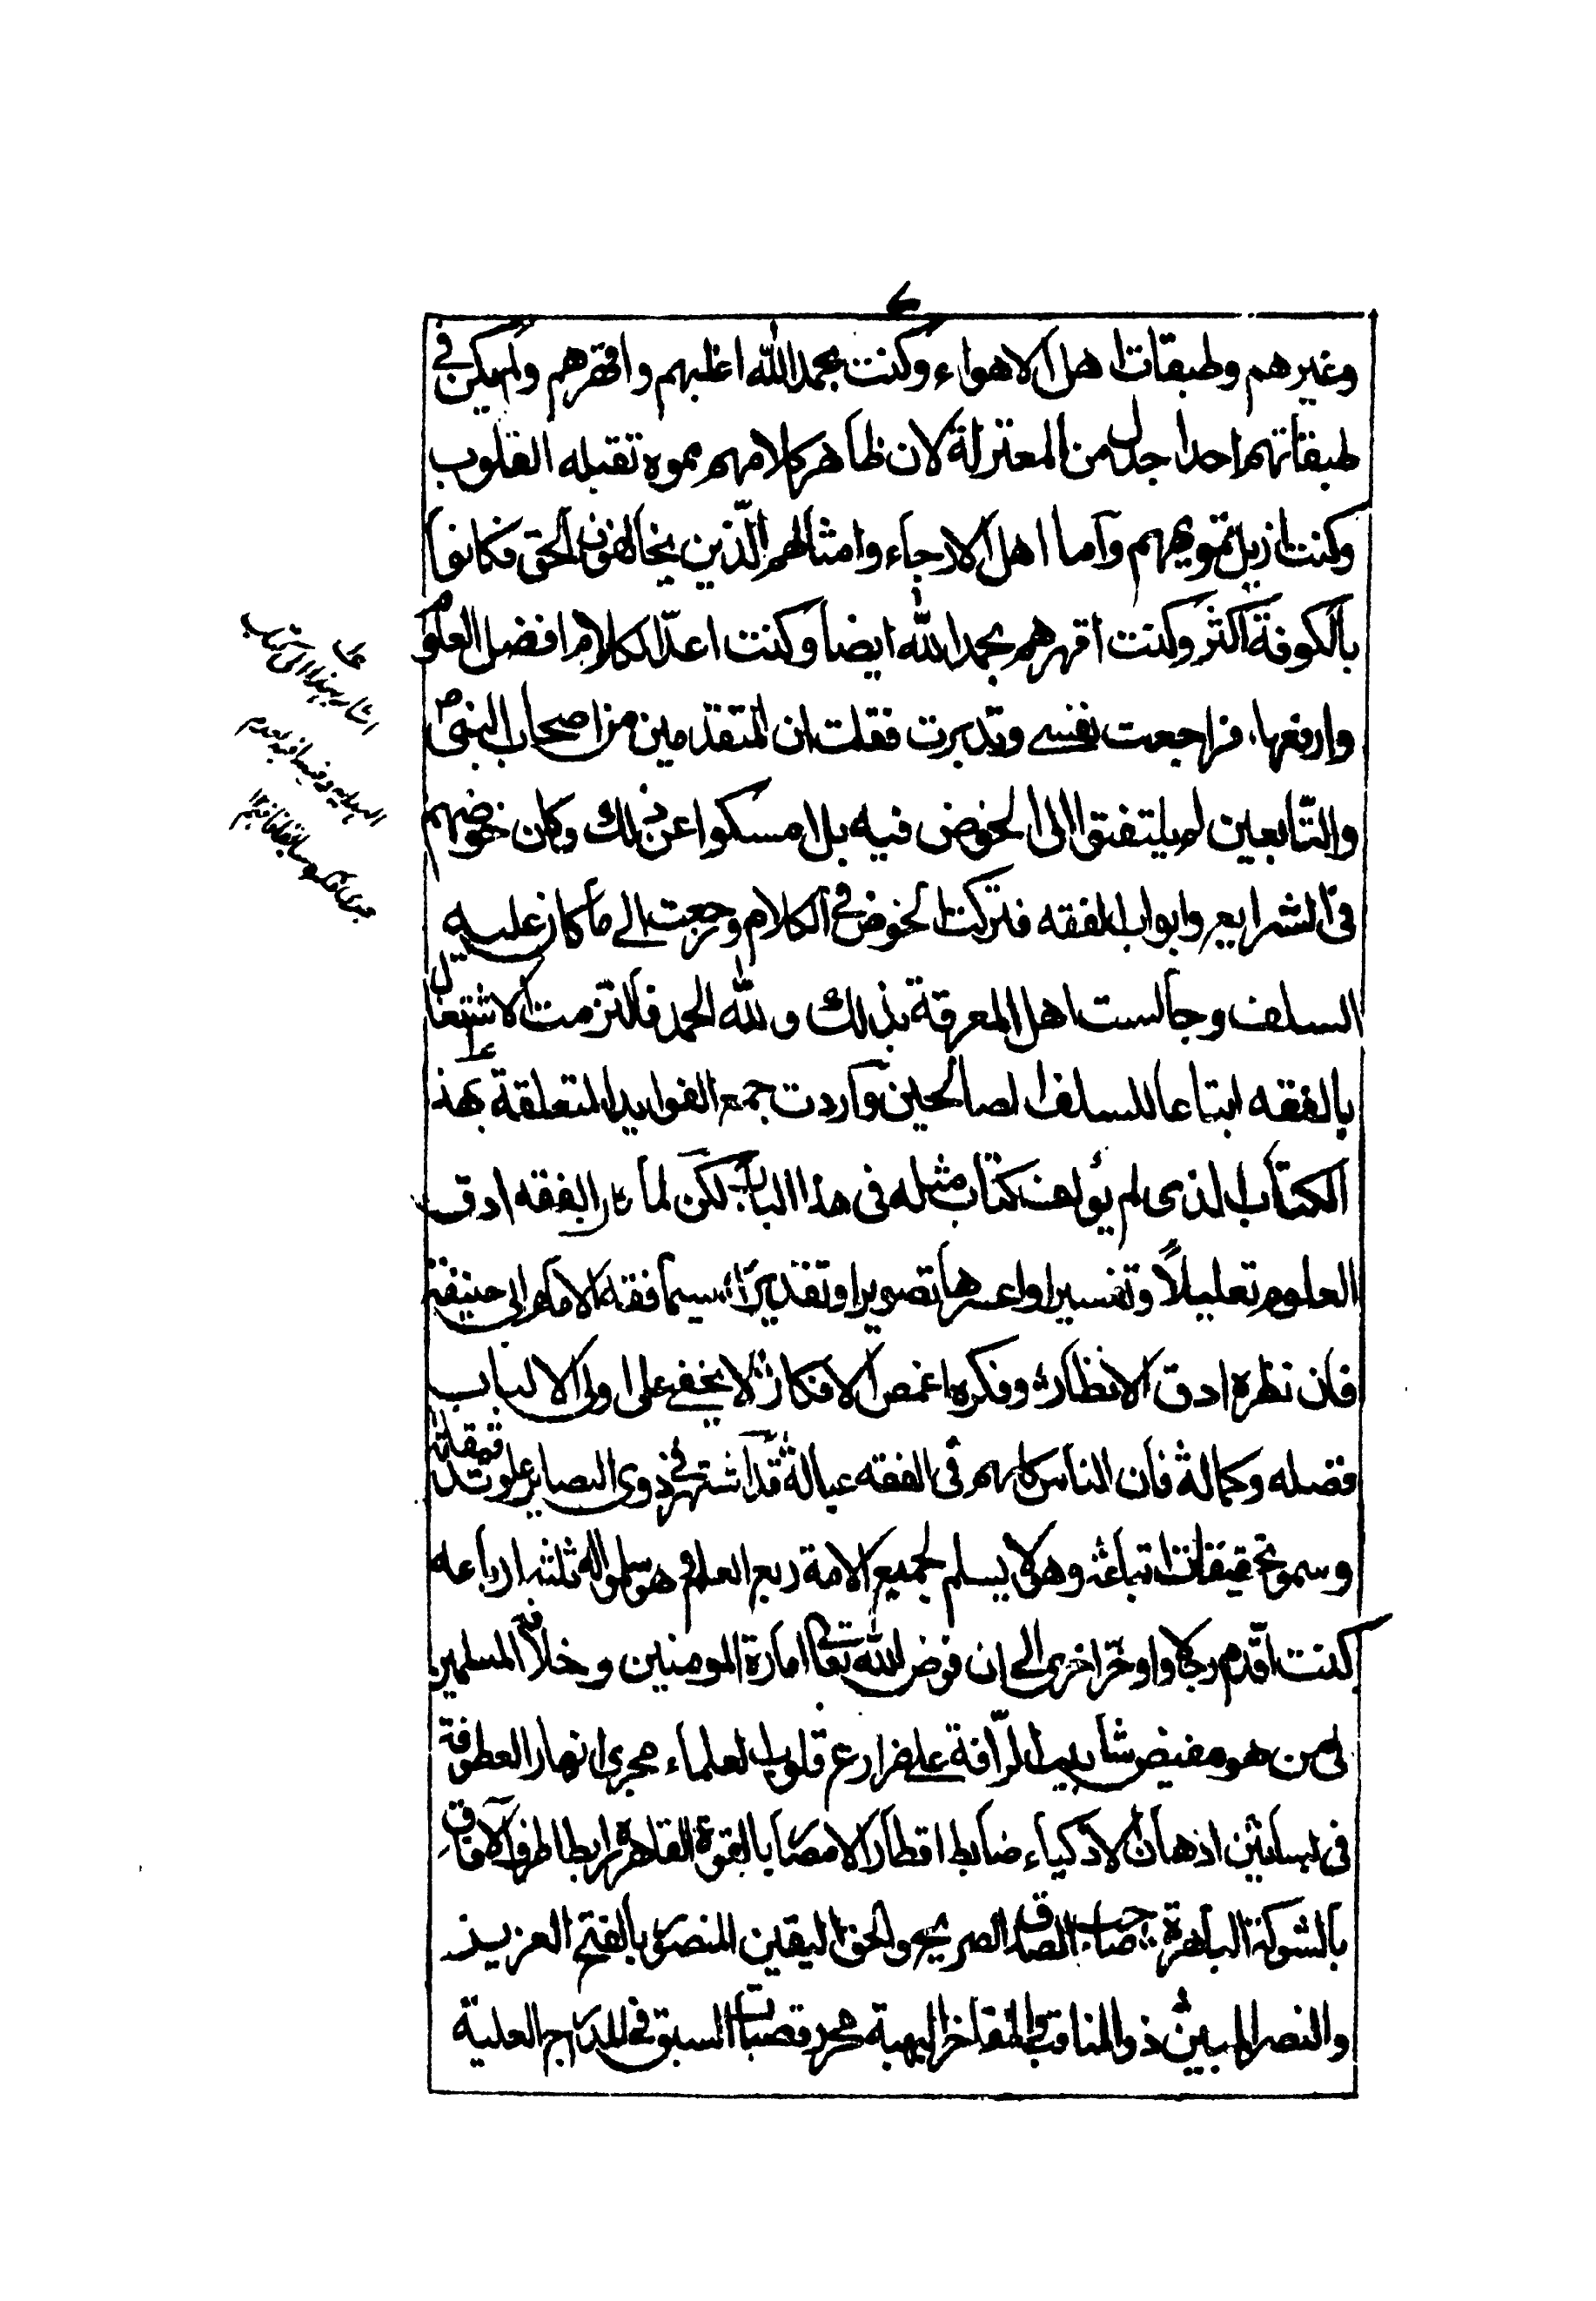 وغيرهم وطبقات اهل الاهواء وكنت بحمد الله اغلبهم واقهرهم ولم يكن في
طبقاتهم احدا جدل من المعتزلة لان ظاهر كلامهم مموه تقبله القلوب
وكنت ازيل تمويههم وأما اهل الارجاء وامثالهم الّذين يخالفون الحق فكانوا
بالكوفة اكثر وكنت اقهرهم بحمد الله ايضا وكنت اعدّ الكلام افضل العلوم
وارفعها، فراجعت نفسے وتدبرت فقلت ان المتقدمين من اصحاب النبى ص
والتّابعين لم يلتفتوا الى الخوض فيه بل امسكوا عن ذلك وكان خوضهم
فى الشرايع وابواب الفقه فتركت الخوض فى الكلام ورجعت الے ما كان عليه
السلف وجالست اهل المعرفة بذلك ولله الحمد فالتزمت الاشتغال
بالفقه ابتاعا للسلف الصالحين واردت جمع الفوايد المتعلقة بهذ
الكتاب الذى لم يؤلف كتاب مثله فى هذا الباب لكن لما الفقه ادق
العلوم تعليلاً وتفسيرا واعسرها تصويرا وتقديرًا سيما فقه الامام ابى حنيفة
فان نظره ادق الانظار وفكره اغمض الافكار لا يخفے على اولى الالباب
فضله وكماله فان الناس كلهم فى الفقه عياله قد اشتهر فى ذوى البصاير علو تدقيقاته
وسمو تحقيقات اتباعه وهو لا يسلم لجميع الامة ربع العلم وهم سلموا له ثلثة ارباعه
كنت اقدم رجلا واوخر اخرى الے ان فوض الله تعالى امارة المومنين وخلافة المسلمين
لمن هو مفيض شابيب الرّافة علے مزارع قلوب العلماء مجرى انهار العطوفة
فى بساتين اذهان الاذكياء ضابط اقطار الامصار بالقوة القاهرة رابط اطراف الآفاق
بالشوكة الباهرة صاحب الصدق الصريح والحق اليقين المنصور بالفتح العزيز
والنصر المبين ذو المناقب والمفاخر البهية محرز قصبات السبق فى المدارج العلية